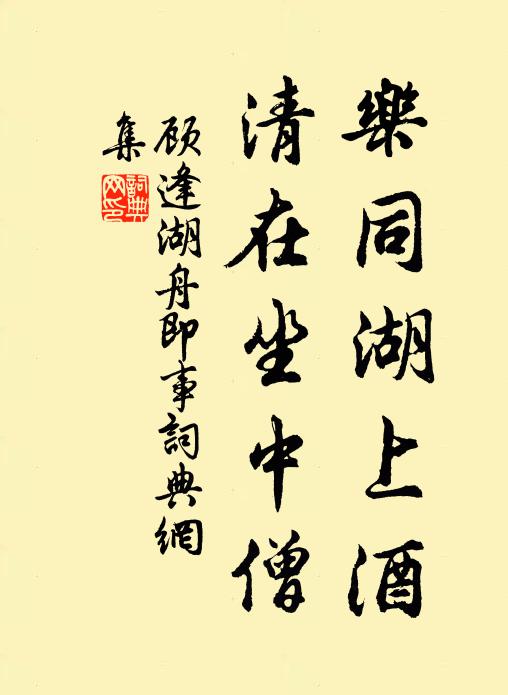 樂同湖上酒
清在坐中僧
顾逢湖舟即事詞典網
集
詞典網印